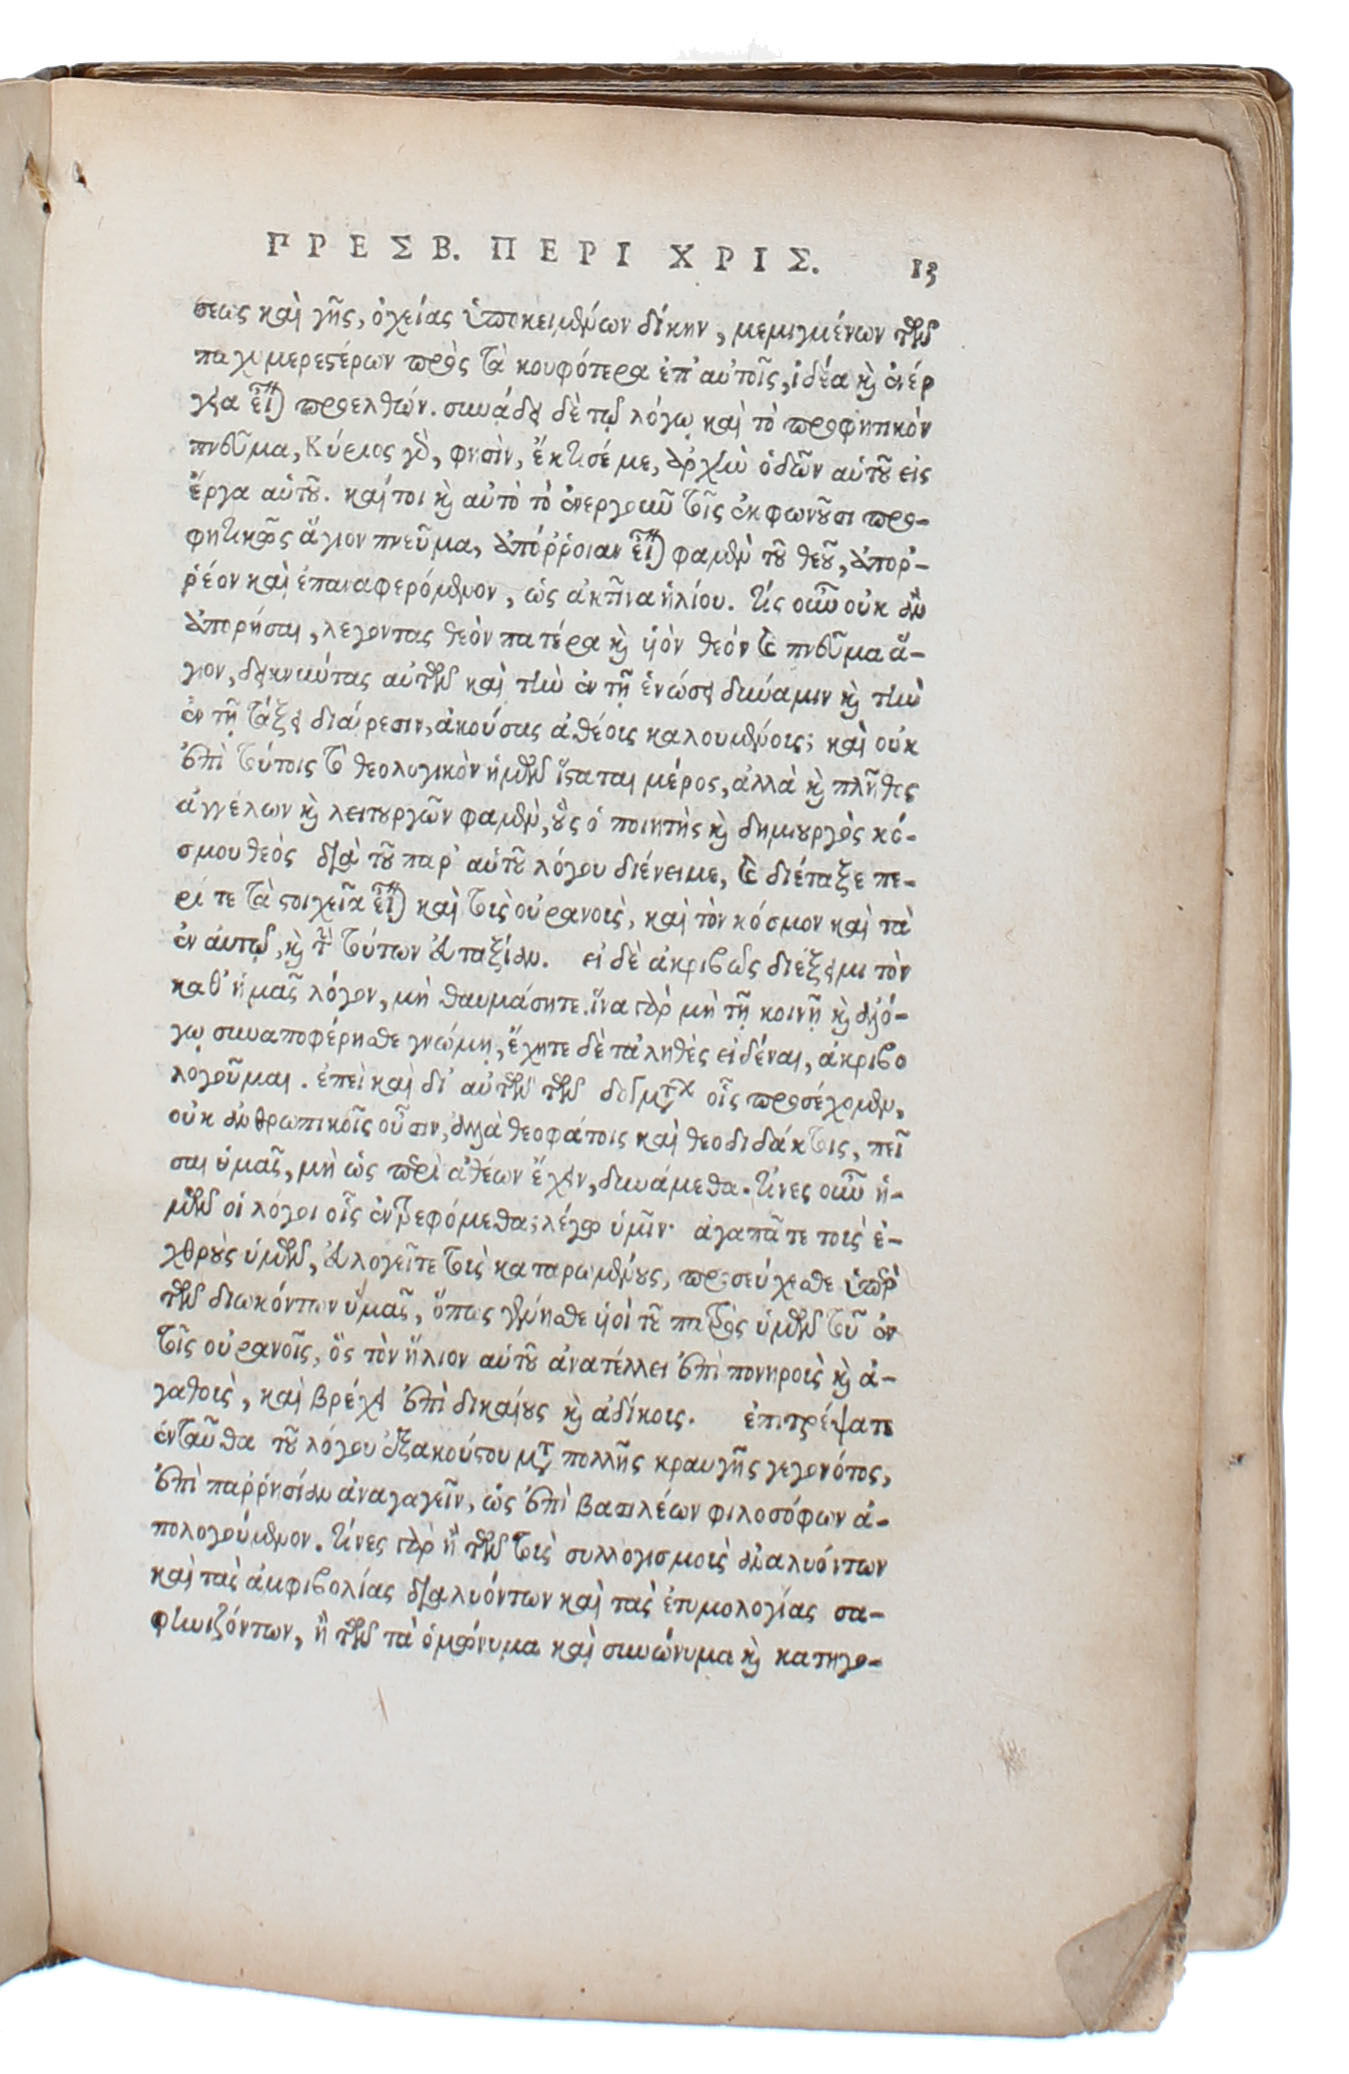 ΠΡΕΣΒ. ΠΕΡΙ ΧΡΙΣ. 13
σεως καὶ γῆς, ὀχείας ὑποκειμένων δίκην, μεμιγμένων τῶν
παχυμερεστέρων πρὸς τὰ κουφότερα ἐπ' αὐτοῖς, ἰδέα καὶ ἐνέρ
γεια εἶναι προελθών. συνᾴδει δὲ τῷ λόγῳ καὶ τὸ προφητικὸν
πνεῦμα, Κύριος γὰρ, φησὶν, ἔκτισέ με, ἀρχὴν ὁδῶν αὑτοῦ εἰς
ἔργα αὑτοῦ. καίτοι καὶ αὐτὸ τὸ ἐνεργοῦν τοῖς ἐκφωνοῦσι προ-
φητικῶς ἅγιον πνεῦμα, ἀπόῤῥοιαν εἶναι φαμὲν τοῦ θεοῦ, ἀποῤ-
ῥέον καὶ ἐπαναφερόμενον, ὡς ἀκτῖνα ἡλίου. τίς οὖν οὐκ ἂν
ἀπορήσαι, λέγοντας θεὸν πατέρα καὶ υἱὸν θεὸν καὶ πνεῦμα ἅ-
γιον, δεικνύντας αὐτῶν καὶ τὴν ἐν τῇ ἑνώσει δύναμιν καὶ τὴν
ἐν τῇ τάξει διαίρεσιν, ἀκούσας ἀθέοις καλουμένοις; καὶ οὐκ
ἐπὶ τούτοις τὸ θεολογικὸν ἡμῶν ἵσταται μέρος, ἀλλὰ καὶ πλῆθος
ἀγγέλων καὶ λειτουργῶν φαμὲν, οὓς ὁ ποιητὴς καὶ δημιουργὸς κό-
σμου θεὸς διὰ τοῦ παρ' αὑτοῦ λόγου διένειμε, καὶ διέταξε πε-
ρί τε τὰ στοιχεῖα εἶναι καὶ τοὺς οὐρανοὺς, καὶ τὸν κόσμον καὶ τὰ
ἐν αὐτῷ, καὶ τὴν τούτων εὐταξίαν. εἰ δὲ ἀκριβῶς διέξειμι τὸν
καθ' ἡμᾶς λόγον, μὴ θαυμάσητε. ἵνα γὰρ μὴ τῇ κοινῇ καὶ ἀλό-
γῳ συναποφέρησθε γνώμῃ, ἔχητε δὲ τἀληθὲς εἰδέναι, ἀκριβο
λογοῦμαι. ἐπεὶ καὶ δι' αὐτῶν τῶν δογμάτων οἷς προσέχομεν,
οὐκ ἀνθρωπικοῖς οὖσιν, ἀλλὰ θεοφάτοις καὶ θεοδιδάκτοις, πεῖ
σαι ὑμᾶς, μὴ ὡς περὶ ἀθέων ἔχειν, δυνάμεθα. τίνες οὖν ἡ-
μῶν οἱ λόγοι οἷς ἐντρεφόμεθα; λέγω ὑμῖν· ἀγαπᾶτε τοὺς ἐ-
χθροὺς ὑμῶν, εὐλογεῖτε τοὺς καταρωμένους, προσεύχεσθε ὑπὲρ
τῶν διωκόντων ὑμᾶς, ὅπως γένησθε υἱοὶ τοῦ πατρὸς ὑμῶν τοῦ ἐν
τοῖς οὐρανοῖς, ὃς τὸν ἥλιον αὑτοῦ ἀνατέλλει ἐπὶ πονηροὺς καὶ ἀ-
γαθοὺς, καὶ βρέχει ἐπὶ δικαίους καὶ ἀδίκοις. ἐπιτρέψατε
ἐνταῦθα τοῦ λόγου ἐξακούστου μετὰ πολλῆς κραυγῆς γεγονότος,
ἐπὶ παῤῥησίαν ἀναγαγεῖν, ὡς ἐπὶ βασιλέων φιλοσόφων ἀ-
πολογούμενον. τίνες γὰρ ἢ τῶν τοὺς συλλογισμοὺς ἀναλυόντων
καὶ τὰς ἀμφιβολίας διαλυόντων καὶ τὰς ἐτυμολογίας σα-
φηνιζόντων, ἢ τῶν τὰ ὁμώνυμα καὶ συνώνυμα καὶ κατηγο-